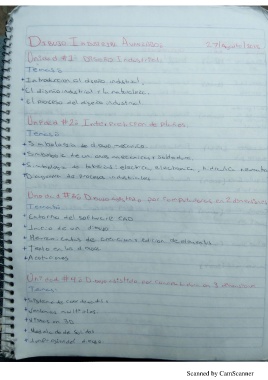 Dibujo Industrial Avanzado 27/Agosto/
Unidad #1: Dibujo Industrial.
Temas
• Introducción al diseño industrial.
• El diseño industrial y la naturaleza.
• El proceso del diseño industrial.
Unidad #2: Interpretación de planos.
Temario
• Simbología de dibujo mecánico.
• Simbología de uniones mecánicas y soldadura
• Simbología de tuberías, eléctrica, electrónica, hidráulica, neumática
• Diagramas de procesos industriales
Unidad #3: Dibujo asistido por computadora en 2 dimensiones
Temario
• Entorno del software CAD
• Inicio de un dibujo
• edición de elementos
• Texto en los dibujos
• Acotaciones
Unidad #4: Dibujo asistido por computadora en 3 dimensiones
Temas
• Sistema de coordenadas
• Ventanas múltiples
• Vistas en 3D
• Modelado de
• dibujo
Scanned by CamScanner